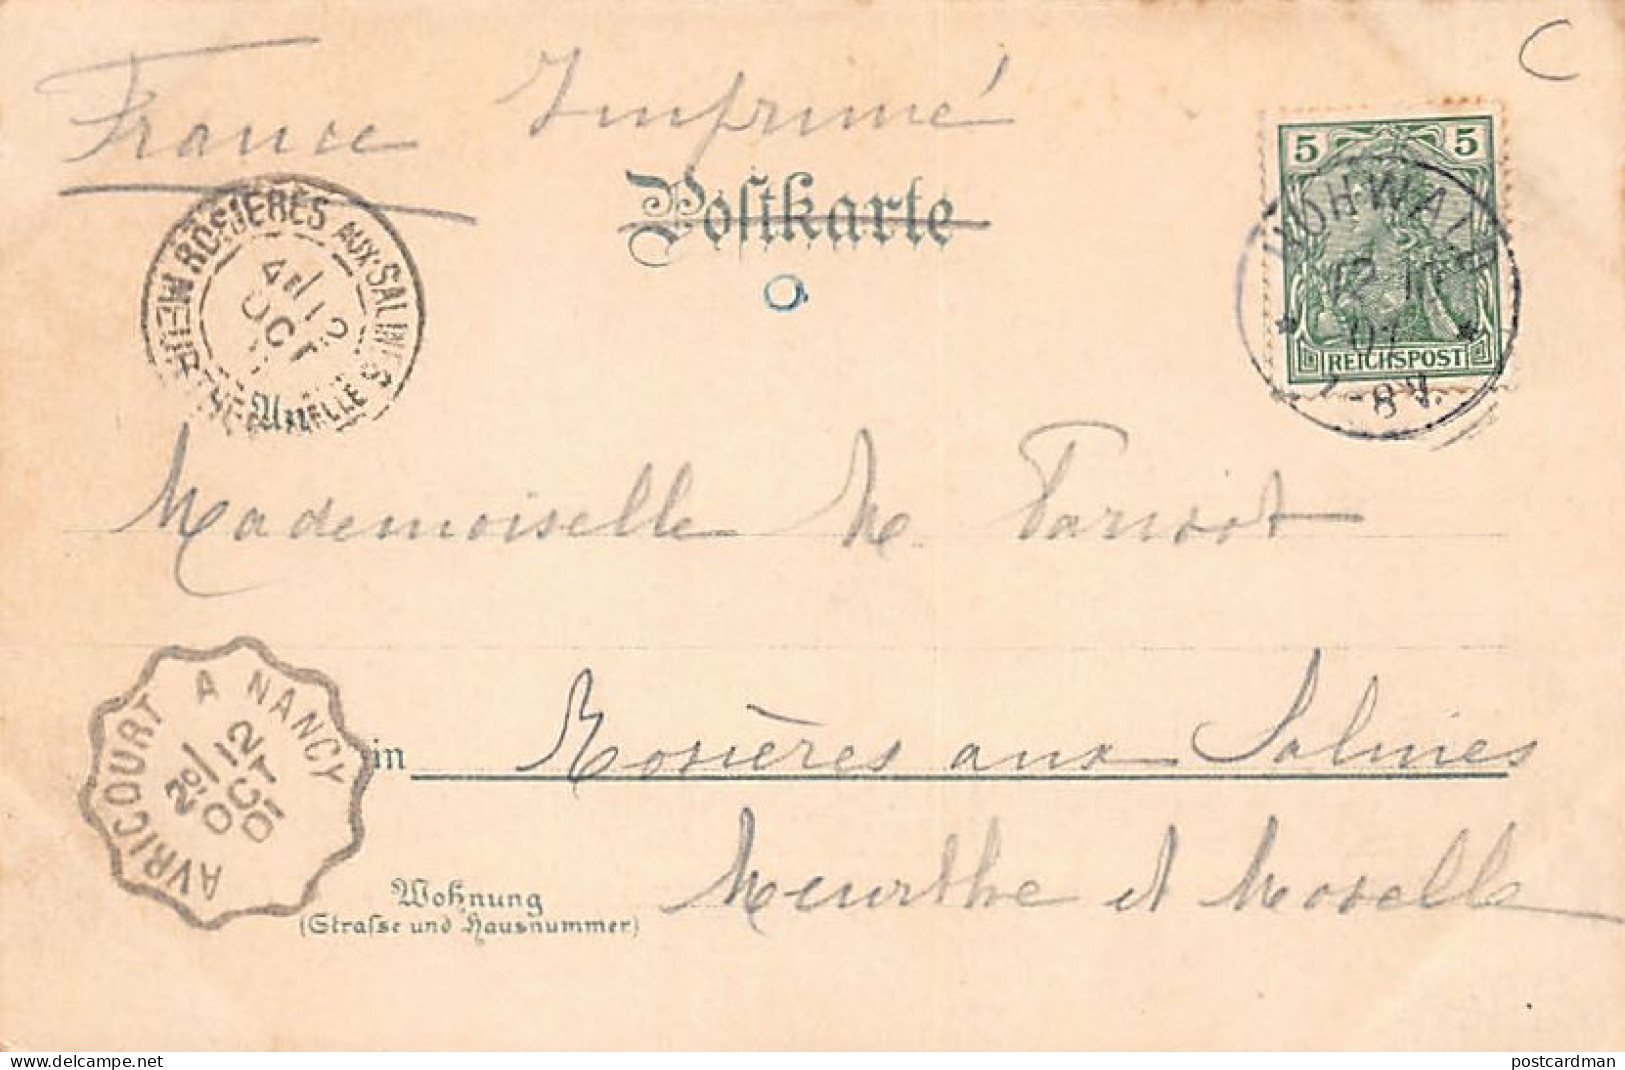 C
France Imprimé
5 5
Postkarte
HOHWALD
12 10
01
7-8 V.
REICHSPOST
ROSIERES AUX SALINES
4E/12
OCT
MEURTHE ET MOSELLE
An
Mademoiselle M Parisot
AVRICOURT A NANCY
2E/12
OCT
01
in Rosières aux Salines
Meurthe et Moselle
Wohnung
(Strasse und Hausnummer)
http://store.delcampe.net/postcardman
postcardman